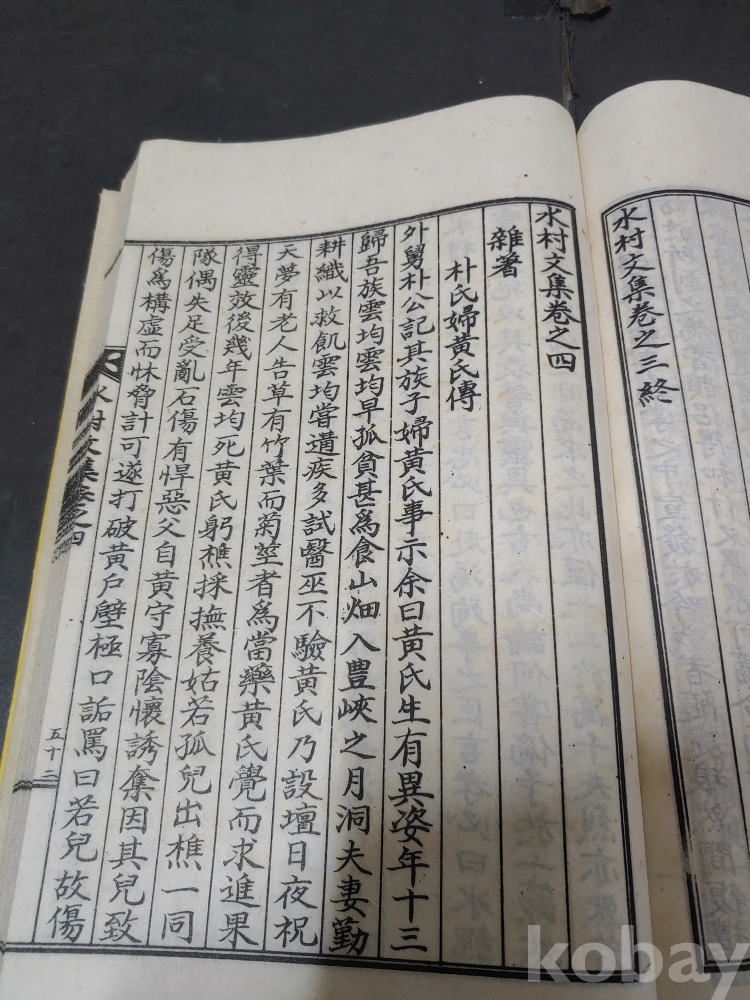 水村文集卷之三終
水村文集卷之四
雜著
朴氏婦黃氏傳
外舅朴公記其族子婦黃氏事示余曰黃氏生有異姿年十三
歸吾族雲均雲均早孤貧甚爲食山畑入豊峽之月洞夫妻勤
耕織以救飢雲均嘗遘疾多試醫巫不驗黃氏乃設壇日夜祝
天夢有老人告草有竹葉而菊莖者爲當藥黃氏覺而求進果
得靈效後幾年雲均死黃氏躬樵採撫養姑若孤兒出樵一同
隊偶失足受亂石傷有悍惡父自黃守寡陰懷誘奪因其兒致
傷爲構虛而怵脅計可遂打破黃戶壁極口詬罵曰若兒故傷
水村文集卷之四
五十二
kobay